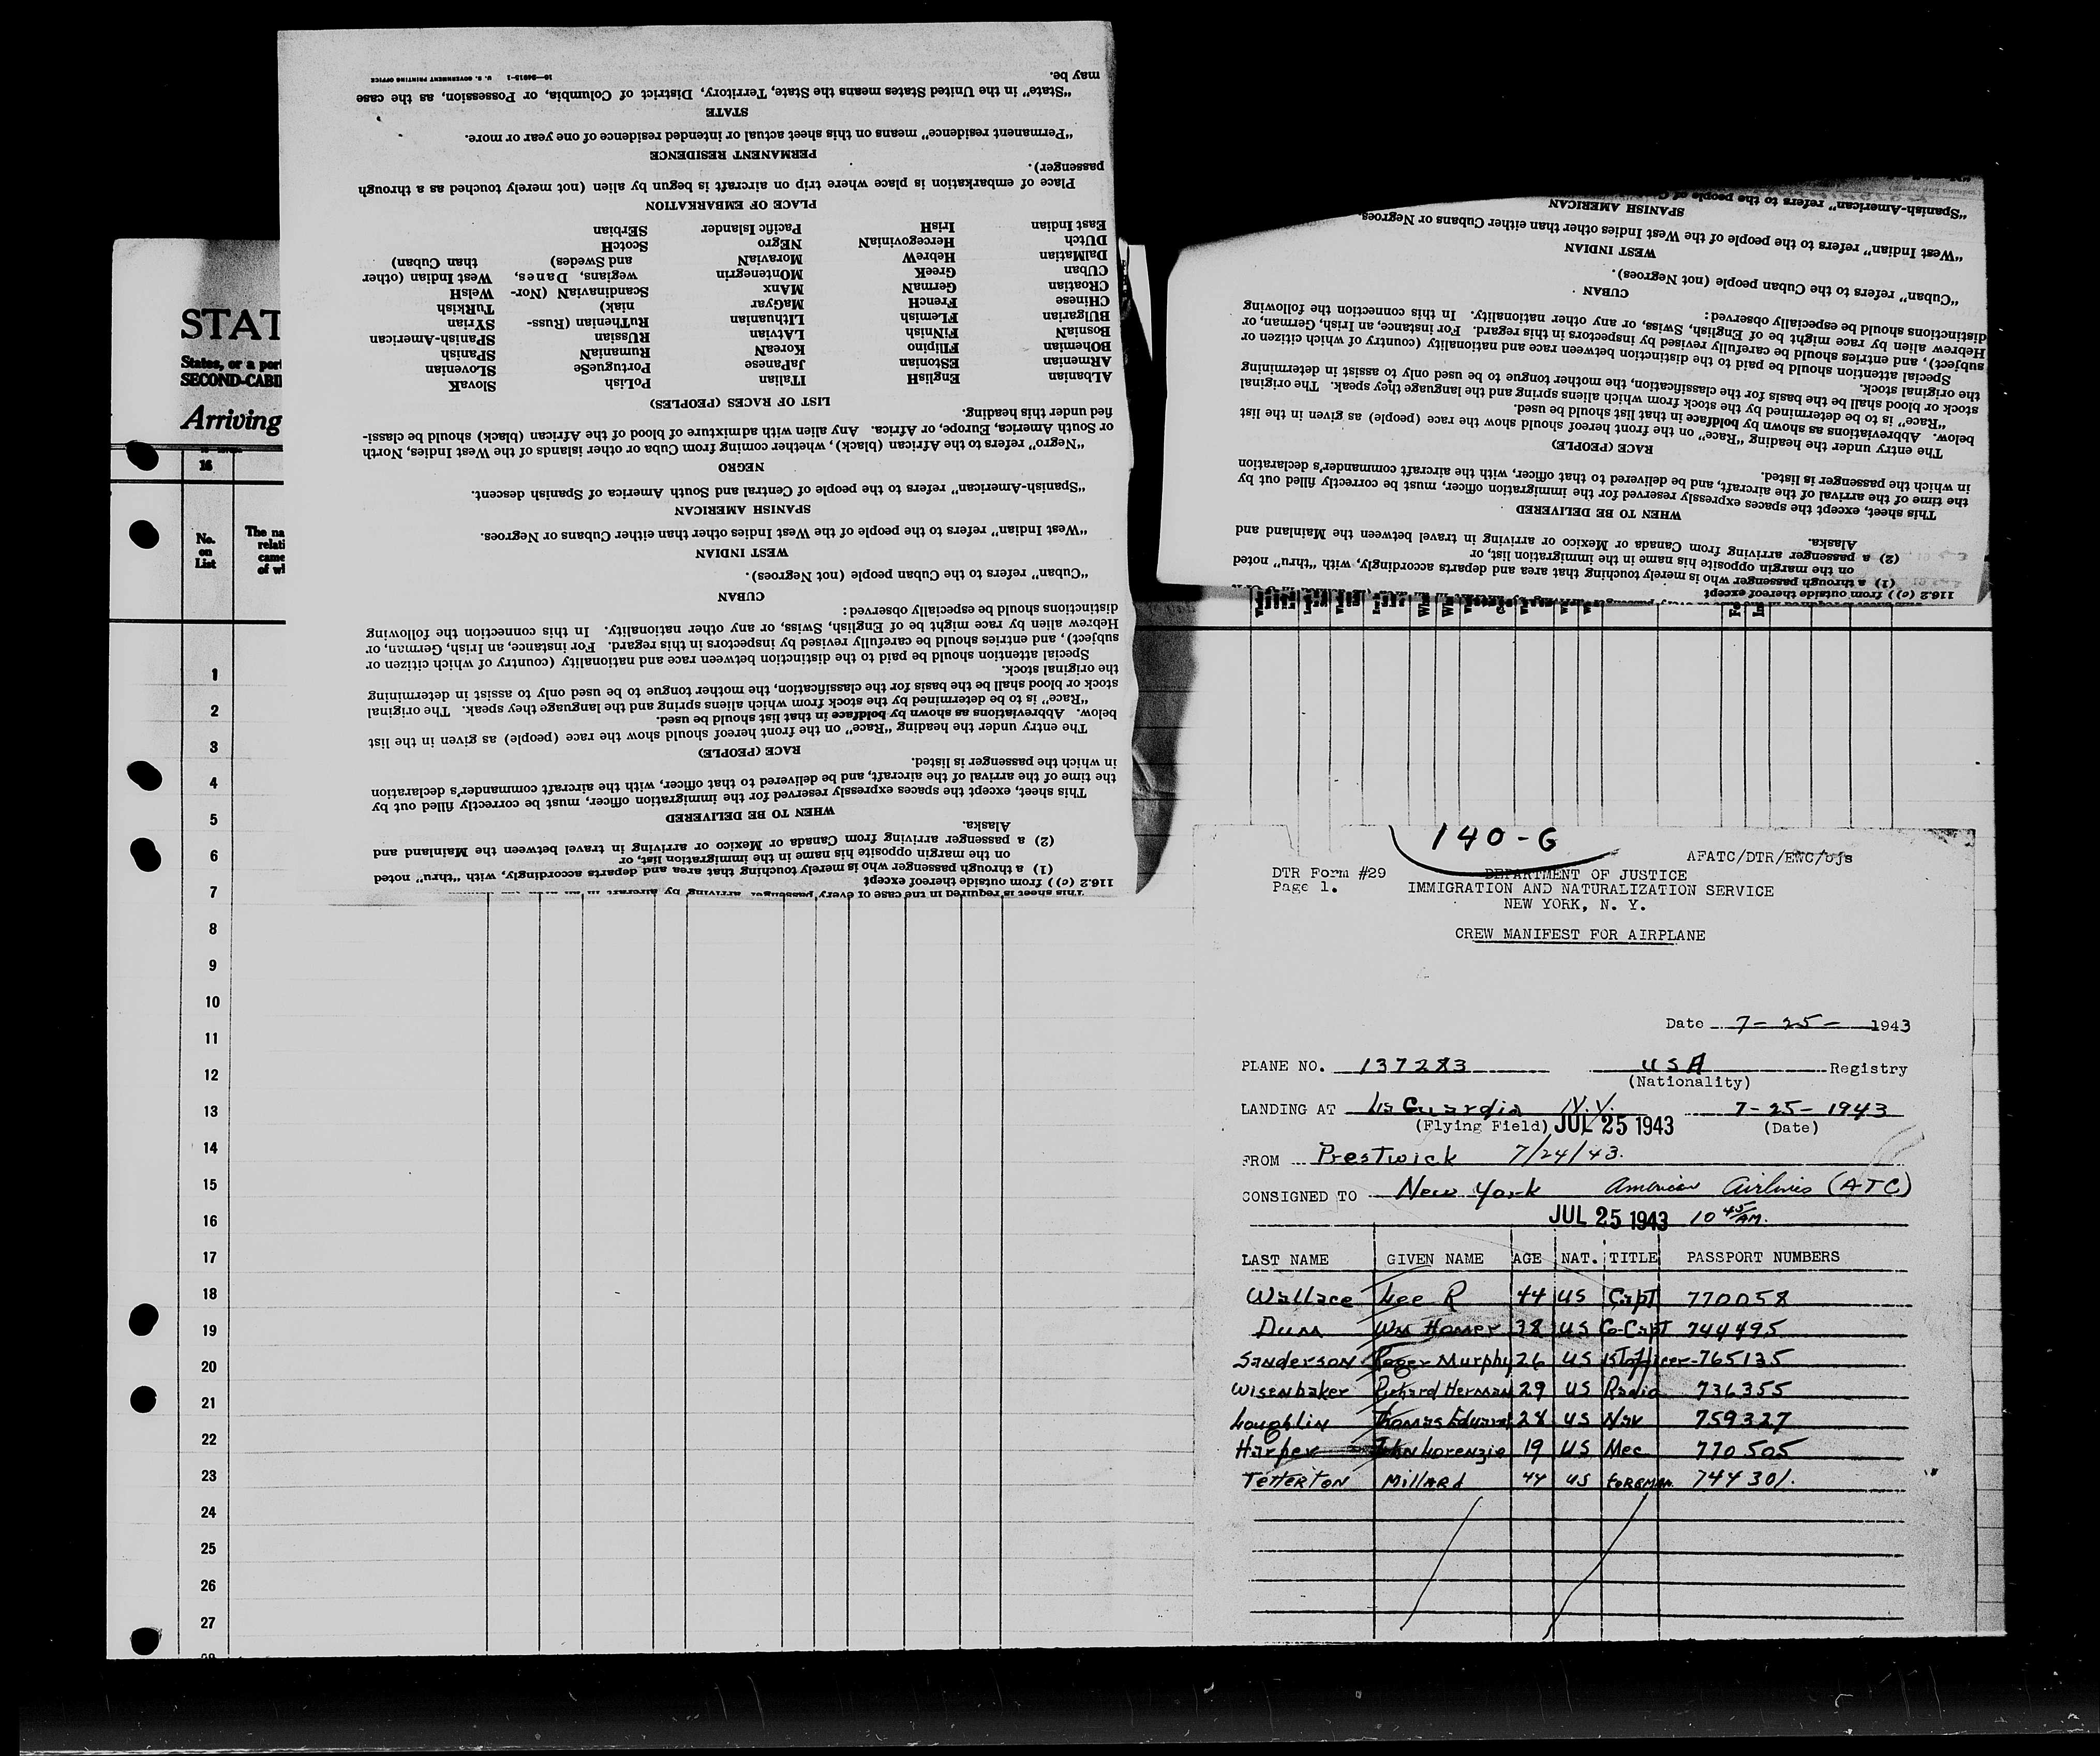 STAT
States, or a port
SECOND-CABI
Arriving
16
No.
on
List
The na
relati
came
of wh
1
2
3
4
5
6
7
8
9
10
11
12
13
14
15
16
17
18
19
20
21
22
23
24
25
26
27
This sheet is required in the case of every passenger arriving by aircraft in
116.2 (c)) from outside thereof except
(1) a through passenger who is merely touching that area and departs accordingly, with "thru" noted
on the margin opposite his name in the immigration list, or
(2) a passenger arriving from Canada or Mexico or arriving in travel between the Mainland and
Alaska.
WHEN TO BE DELIVERED
This sheet, except the spaces expressly reserved for the immigration officer, must be correctly filled out by
the time of the arrival of the aircraft, and be delivered to that officer, with the aircraft commander's declaration
in which the passenger is listed.
RACE (PEOPLE)
The entry under the heading "Race" on the front hereof should show the race (people) as given in the list
below. Abbreviations as shown by boldface in that list should be used.
"Race" is to be determined by the stock from which aliens spring and the language they speak. The original
stock or blood shall be the basis for the classification, the mother tongue to be used only to assist in determining
the original stock.
Special attention should be paid to the distinction between race and nationality (country of which citizen or
subject), and entries should be carefully revised by inspectors in this regard. For instance, an Irish, German, or
Hebrew alien by race might be of English, Swiss, or any other nationality. In this connection the following
distinctions should be especially observed:
CUBAN
"Cuban" refers to the Cuban people (not Negroes).
WEST INDIAN
"West Indian" refers to the people of the West Indies other than either Cubans or Negroes.
SPANISH AMERICAN
"Spanish-American" refers to the people of Central and South America of Spanish descent.
NEGRO
"Negro" refers to the African (black), whether coming from Cuba or other islands of the West Indies, North
or South America, Europe, or Africa. Any alien with admixture of blood of the African (black) should be classi-
fied under this heading.
LIST OF RACES (PEOPLES)
ALbanian EnglisH ITalian PolisH SlovaK
ARmenian EStonian JaPanese PortugueSe SLOvenian
BOhemian FIlipino KoreaN RumaniaN SPanish
BosniaN FiNnish LAtvian RUssian SPanish-American
BUlgarian FLemish LIthuanian RuThenian (Russ- SYrian
CHinese FrencH MaGyar niak) TuRkish
CRoatian GermaN MAnx ScandinaviaN (Nor- WelsH
CUban GreeK MOntenegrin wegians, Danes, West Indian (other
DalMatian HebreW MoraviaN and Swedes) than Cuban)
DUtch HercegoviniaN NEgro ScotcH
East Indian IrisH Pacific Islander SErbian
PLACE OF EMBARKATION
Place of embarkation is place where trip on aircraft is begun by alien (not merely touched as a through
passenger).
PERMANENT RESIDENCE
"Permanent residence" means on this sheet actual or intended residence of one year or more.
STATE
"State" in the United States means the State, Territory, District of Columbia, or Possession, as the case
may be.
U. S. GOVERNMENT PRINTING OFFICE 16—34915-1
116.2 (c)) from outside thereof except
(1) a through passenger who is merely touching that area and departs accordingly, with "thru" noted
on the margin opposite his name in the immigration list, or
(2) a passenger arriving from Canada or Mexico or arriving in travel between the Mainland and
Alaska.
WHEN TO BE DELIVERED
This sheet, except the spaces expressly reserved for the immigration officer, must be correctly filled out by
the time of the arrival of the aircraft, and be delivered to that officer, with the aircraft commander's declaration
in which the passenger is listed.
RACE (PEOPLE)
The entry under the heading "Race" on the front hereof should show the race (people) as given in the list
below. Abbreviations as shown by boldface in that list should be used.
"Race" is to be determined by the stock from which aliens spring and the language they speak. The original
stock or blood shall be the basis for the classification, the mother tongue to be used only to assist in determining
the original stock.
Special attention should be paid to the distinction between race and nationality (country of which citizen or
subject), and entries should be carefully revised by inspectors in this regard. For instance, an Irish, German, or
Hebrew alien by race might be of English, Swiss, or any other nationality. In this connection the following
distinctions should be especially observed:
CUBAN
"Cuban" refers to the Cuban people (not Negroes).
WEST INDIAN
"West Indian" refers to the people of the West Indies other than either Cubans or Negroes.
SPANISH AMERICAN
"Spanish-American" refers to the people of
140-G
AFATC/DTR/EWC/ojs
DTR Form #29 DEPARTMENT OF JUSTICE
Page 1. IMMIGRATION AND NATURALIZATION SERVICE
NEW YORK, N. Y.
CREW MANIFEST FOR AIRPLANE
Date 7-25- 1943
PLANE NO. 137283 USA Registry
(Nationality)
LANDING AT La Guardia N.Y. 7-25-1943
(Flying Field) JUL 25 1943 (Date)
FROM Prestwick 7/24/43.
CONSIGNED TO New York American Airlines (ATC)
JUL 25 1943 10 45/AM.
LAST NAME GIVEN NAME AGE NAT. TITLE PASSPORT NUMBERS
Wallace Lee R 44 US Capt 770058
Dunn Wm Homer 38 US Co-Capt 744495
Sanderson Roger Murphy 26 US 1st Officer 765135
Wisenbaker Richard Herman 29 US Radio 736355
Loughlin Thomas Edward 28 US Nav 759327
Harper John Lorenzio 19 US Mec 770505
Tetterton Millard 44 US Foreman 744301.